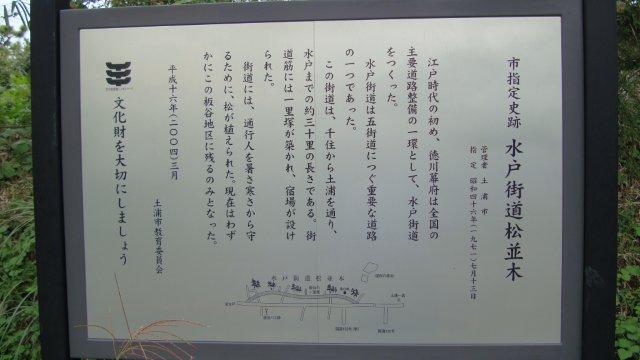 市指定史跡 水戸街道松並木
管理者 土浦市
指定 昭和四十六年(一九七一)七月十三日
江戸時代の初め、徳川幕府は全国の
主要道路整備の一環として、水戸街道
をつくった。
水戸街道は五街道につぐ重要な道路
の一つであった。
この街道は、千住から土浦を通り、
水戸までの約三十里の長さである。街
道筋には一里塚が築かれ、宿場が設け
られた。
街道には、通行人を暑さ寒さから守
るために、松が植えられた。現在はわず
かにこの板谷地区に残るのみとなった。
平成十六年(二〇〇四)三月
土浦市教育委員会
文化財を大切にしましょう
水戸街道松並木